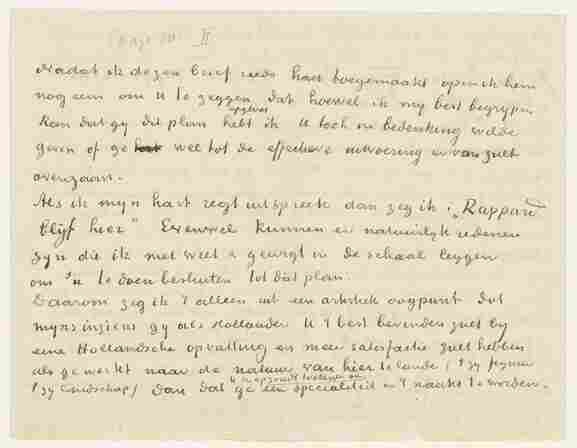 II
Nadat ik dezen brief reeds had toegemaakt open ik hem
nog eens om U te zeggen, dat hoewel ik my best begrypen
opgevat
kan dat gy dit plan hebt ik U toch in bedenking wilde
geven of ge wel tot de effectieve uitvoering er van zult
overgaan.-
Als ik myn hart regt uitspreek dan zeg ik: „Rappard
blyf hier" Evenwel kunnen er natuurlyk redenen
zyn die ik niet weet & gewigt in de schaal leggen
om U te doen besluiten tot dat plan.
Daarom zeg ik 't alleen uit een artistiek oogpunt dat
myns inziens gy als Hollander U 't best bevinden zult by
eene Hollandsche opvatting en meer satisfactie zult hebben
als ge werkt naar de natuur van hier te lande ('t zy figuur
U er op zoudt toeleggen om
't zy landschap) dan dat ge een specialiteit in 't naakt te worden.-